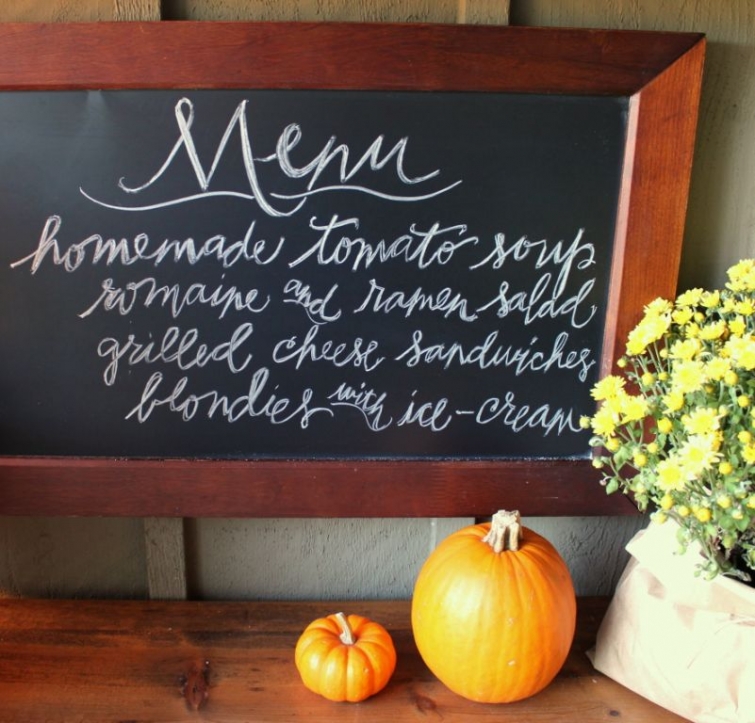 Menu
homemade tomato soup
romaine and ramen salad
grilled cheese sandwiches
blondies with ice-cream